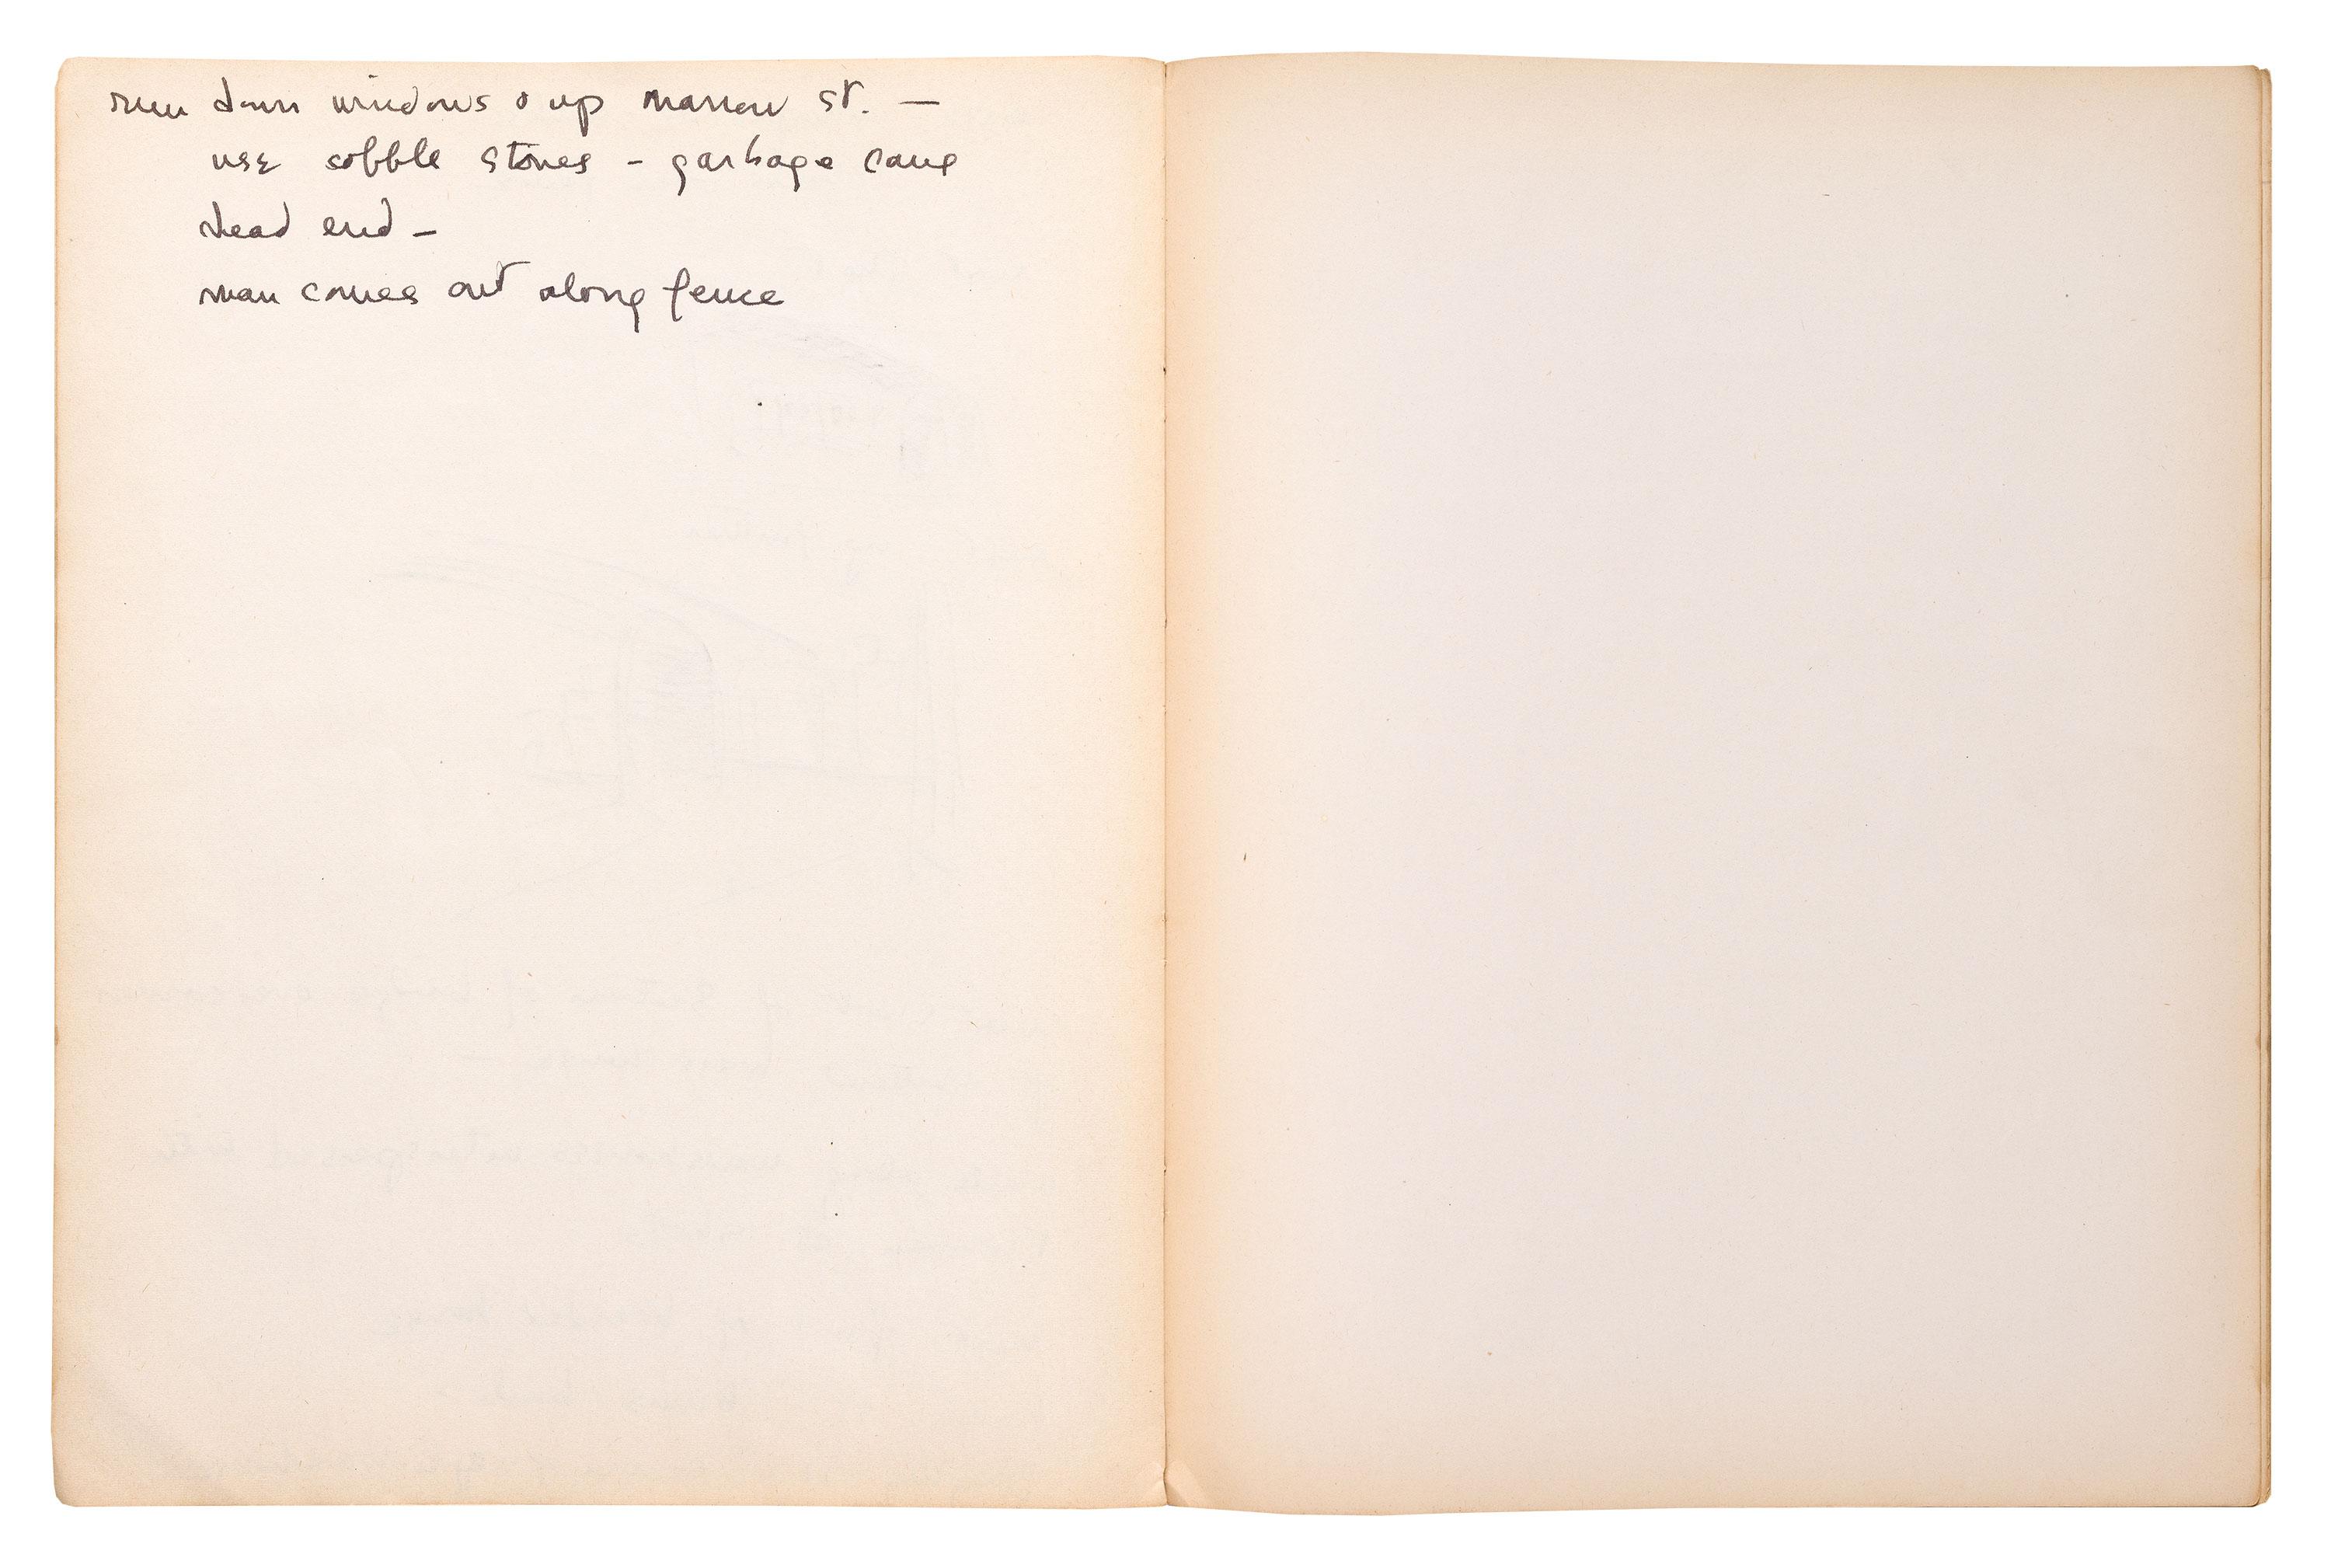 run down windows & up narrow st. —
use cobble stones - garbage cans
dead end -
man comes out along fence